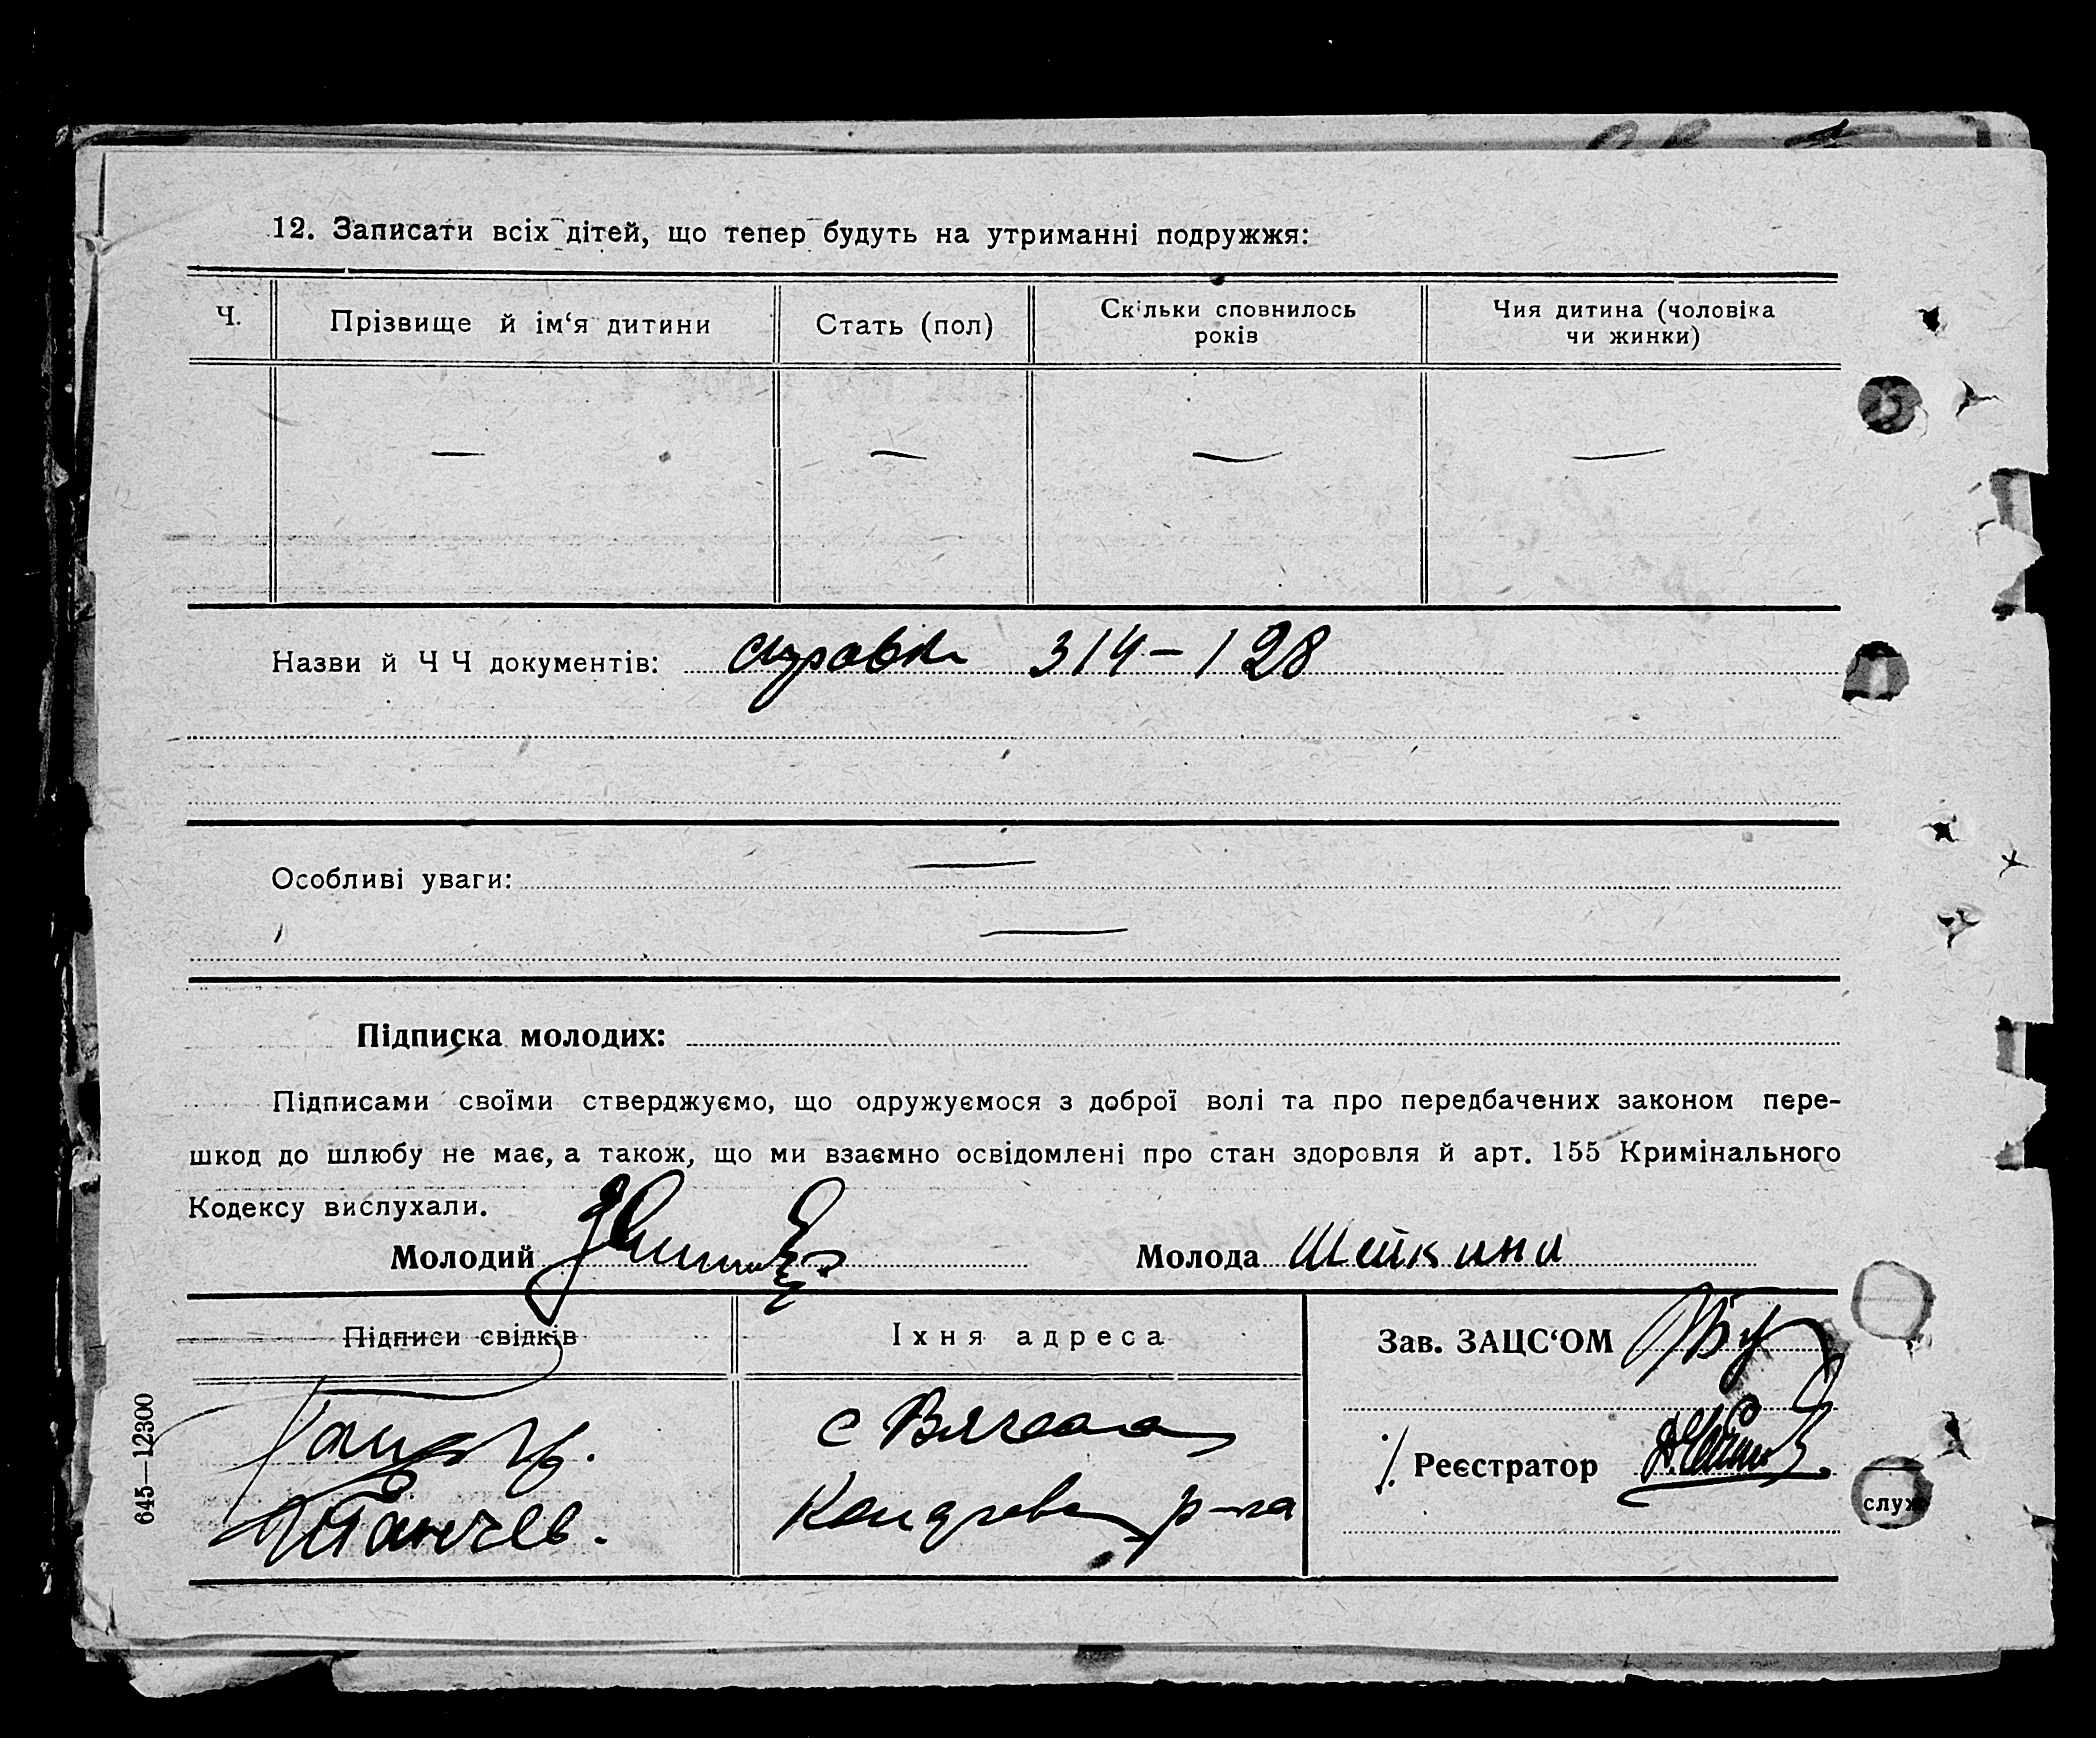 12. Записати всіх дітей, що тепер будуть на утриманні подружжя:
Ч. Прізвище й ім‘я дитини Стать (пол) Скільки сповнилось років Чия дитина (чоловіка чи жинки)
— — — —
Назви й Ч Ч документів: справка 314-128
Особливі уваги: —
—
Підписка молодих:
Підписами своїми стверджуємо, що одружуємося з доброї волі та про передбачених законом пере-
шкод до шлюбу не має, а також, що ми взаємно освідомлені про стан здоровля й арт. 155 Кримінального
Кодексу вислухали.
Молодий Молода Шейкина
Підписи свідків Іхня адреса Зав. ЗАЦС‘ОМ
с
р-на
Реєстратор
служ
645—12300